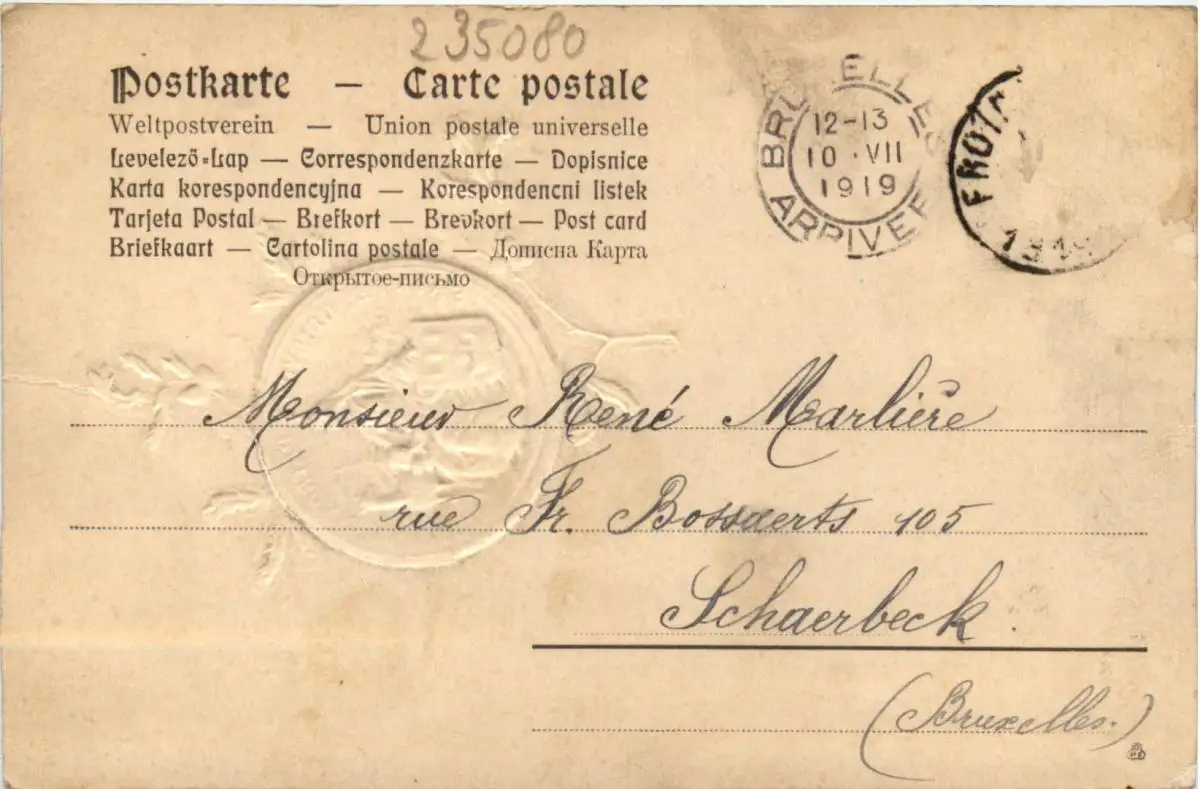 235080
Postkarte — Carte postale
Weltpostverein — Union postale universelle
Levelező-Lap — Correspondenzkarte — Dopisnice
Karta korespondencyjna — Korespondencni listek
Tarjeta Postal — Brefkort — Brevkort — Post card
Briefkaart — Cartolina postale — Дописна Карта
Открытое-письмо
BRUXELLES
12-13
10 · VII
1919
ARRIVEE
Monsieur René Marlière
rue Fr. Bossaerts 105
Schaerbeck.
(Bruxelles.)